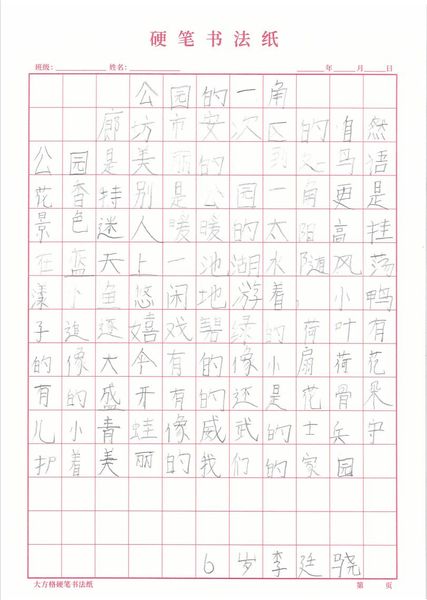 硬笔书法纸
班级: 姓名: 年 月 日
公园的一角
廊方市安次区的自然
公园是美丽的 到处鸟语
花香特别是公园一角更是
景色迷人暖暖的太阳高挂
在蓝天上一池湖水随风荡
漾小鱼悠闲地游着,小鸭
子追逐嬉戏碧绿的荷叶有
的像大伞有的像小扇荷花
有的盛开有的还是花骨朵
儿小青蛙像威武的士兵守
护着美丽的我们的家园
6岁李廷骁
大方格硬笔书法纸 第 页